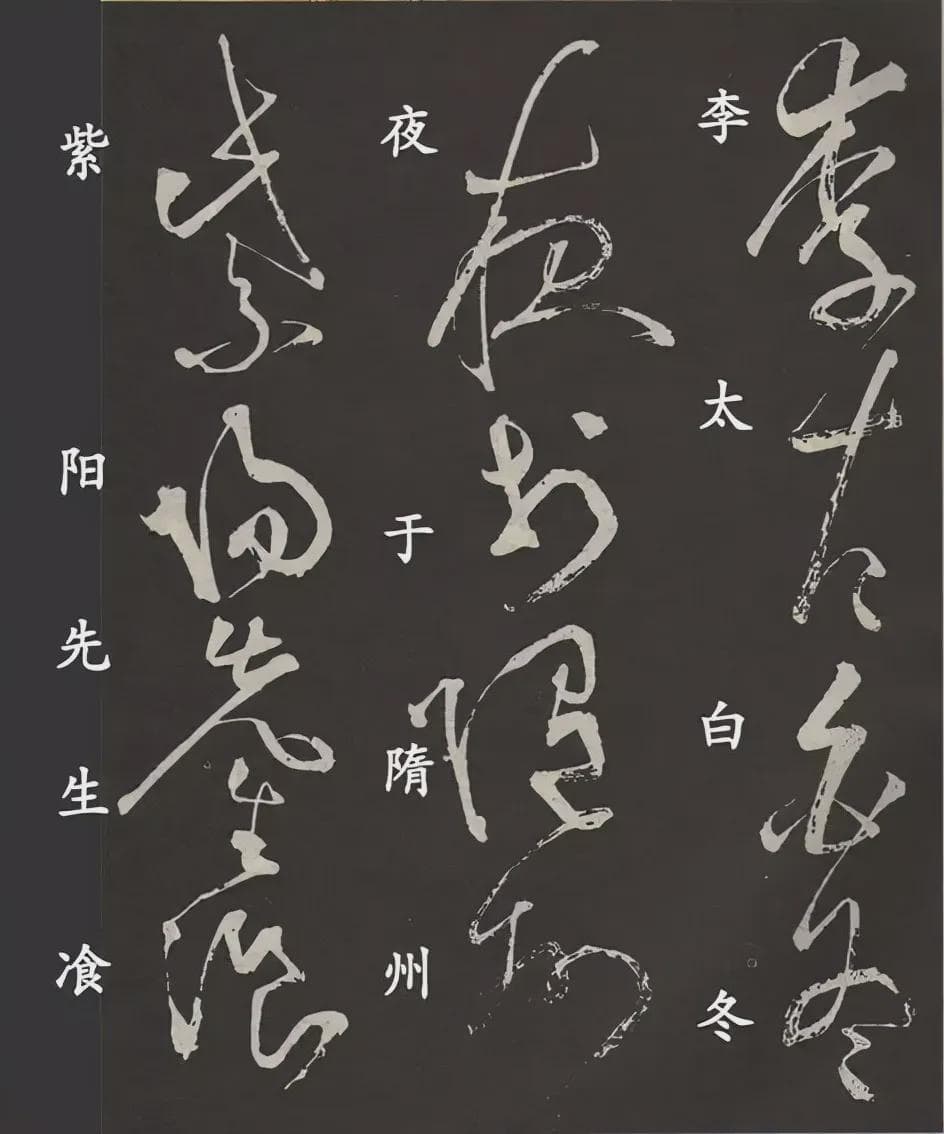 李太白冬
夜于隋州
紫阳先生飡